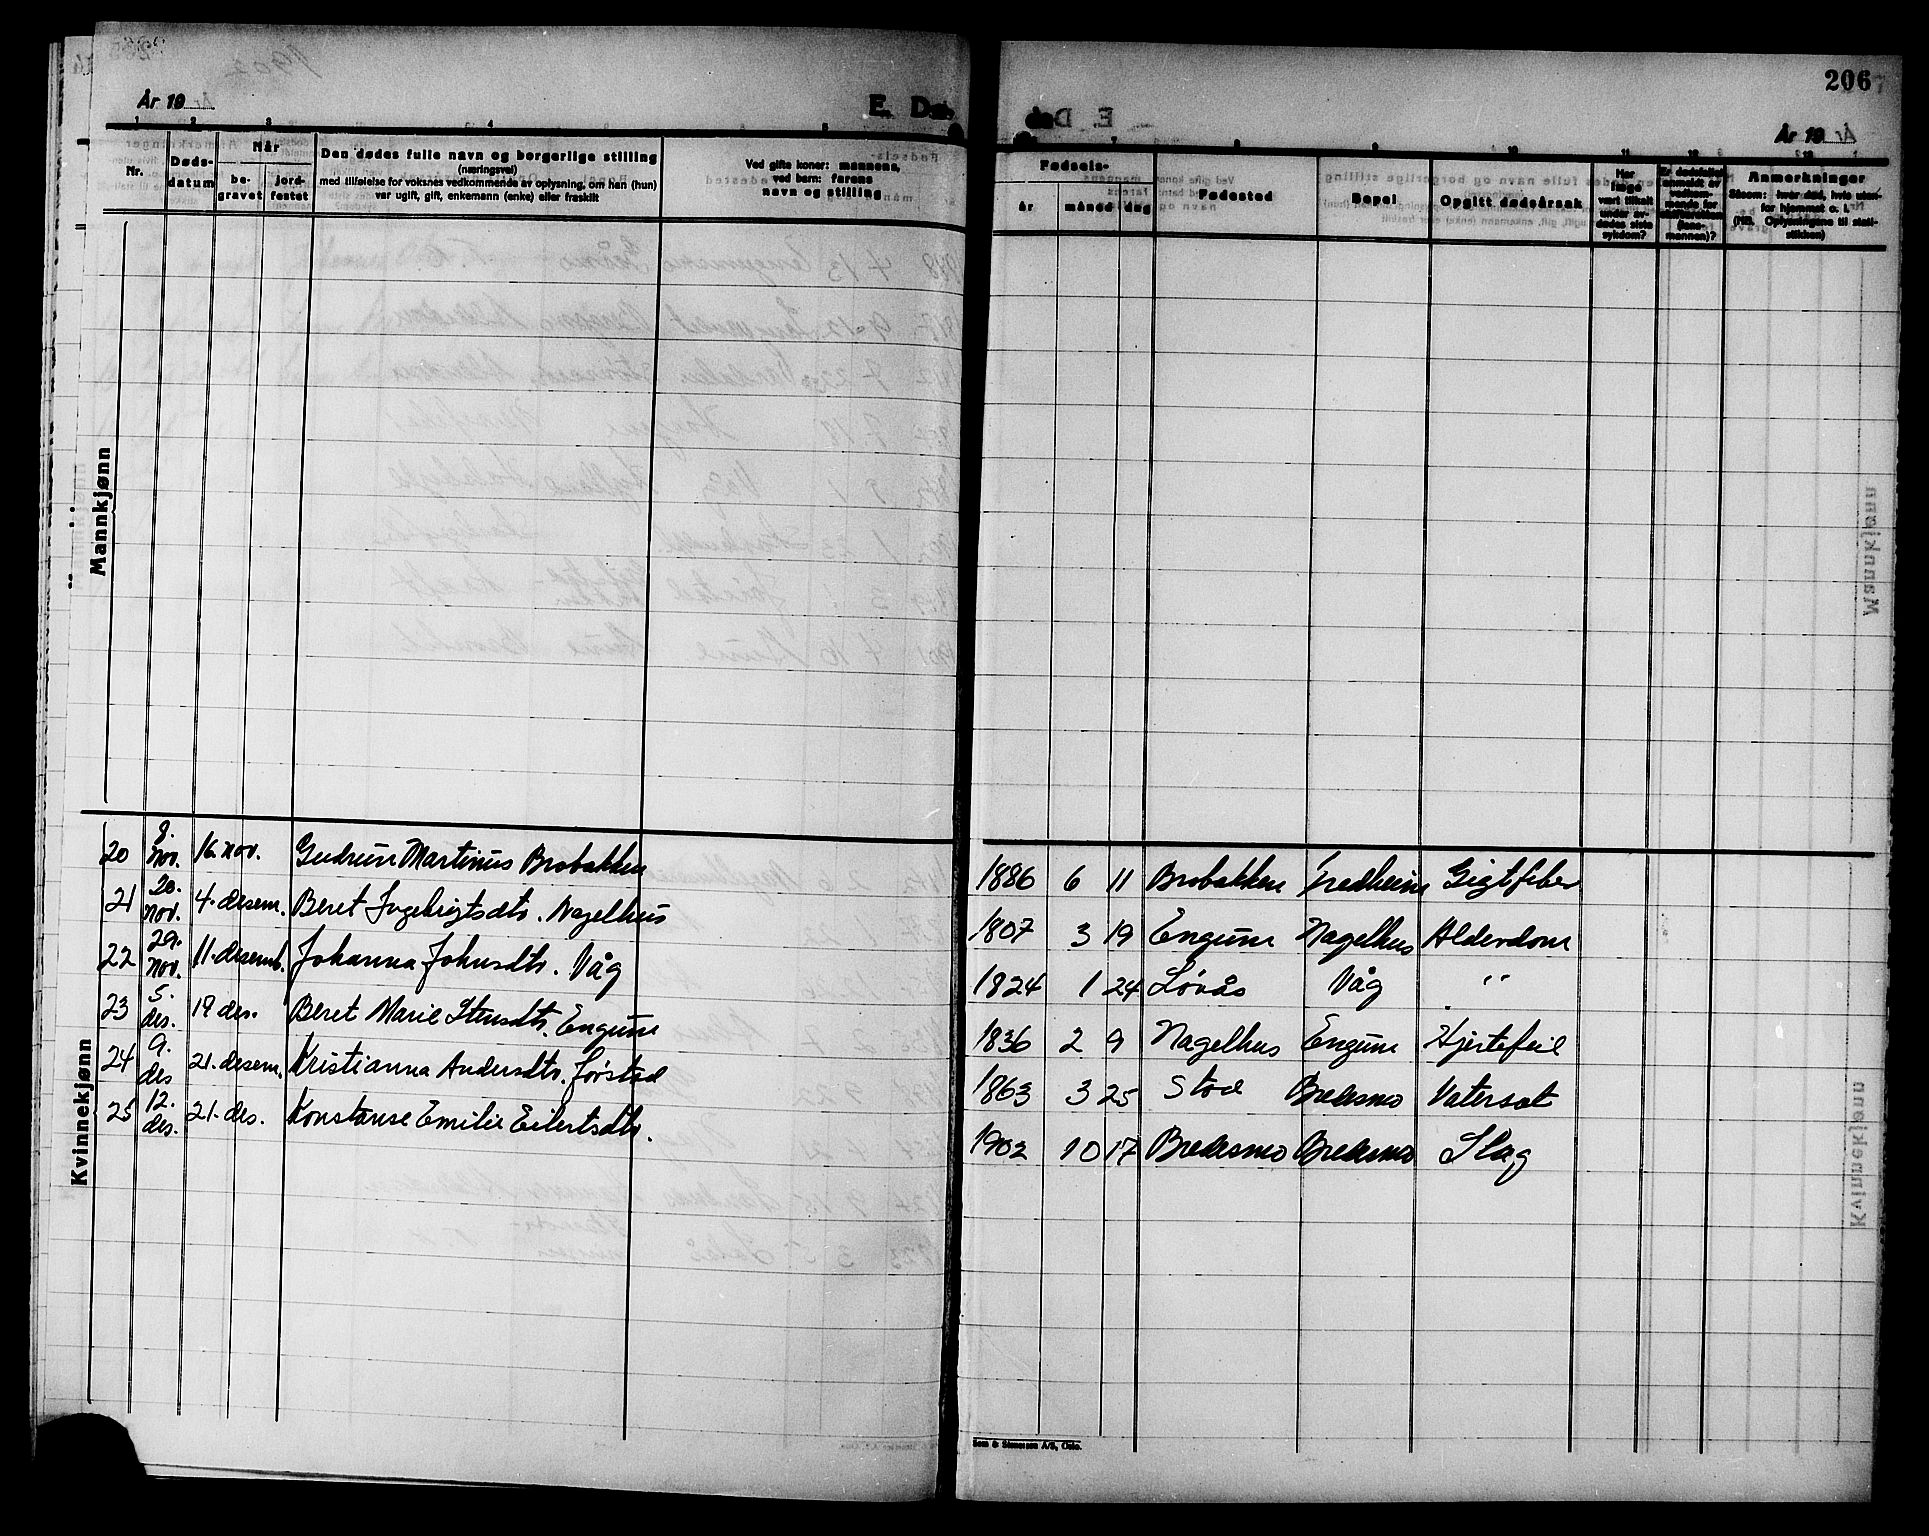 206
År 19
E. Døde
År 19
1 2 3 4 5
7 8 9 10 11 12 13
Nr.
Døds-
datum
Når
be-
gravet
jord-
festet
Den dødes fulle navn og borgerlige stilling
(næringsvei)
med tilføielse for voksnes vedkommende av oplysning, om han (hun)
var ugift, gift, enkemann (enke) eller fraskilt
Ved gifte koner: mannens,
ved barn: farens
navn og stilling
Fødsels-
år
måned
dag
Fødested
Bopel
Opgitt dødsårsak
Har
læge
vært tilkalt
under av-
dødes siste
sykdom?
Anmerkninger
(NB. Oplysningene til stati-
stikken)
Mannkjønn
Kvinnekjønn
20 8. nov. 16. nov. Gudrun Martinus Brobakken 1886 6 11 Brobakken Fredheim Gigtfeber
21 20. nov. 4. desem. Beret Ingebrigtsdtr. Nagelhus 1807 3 19 Engum Nagelhus Alderdom
22 29. nov. 11. desemb. Johanna Johnsdtr. Våg 1824 1 24 Løvås Våg "
23 5. des. 19 des. Beret Marie Stensdtr. Engum 1836 2 9 Nagelhus Engum Hjertefeil
24 9. des 21. desem. Kristianna Andersdtr. Jørstad 1863 3 25 Stod Bredesmo Vatersot
25 12. des. 21. des. Konstanse Emilie Eilertsdtr. 1902 10 17 Bredesmo Bredesmo Slag
Sem & Stenersen A/S, Oslo.